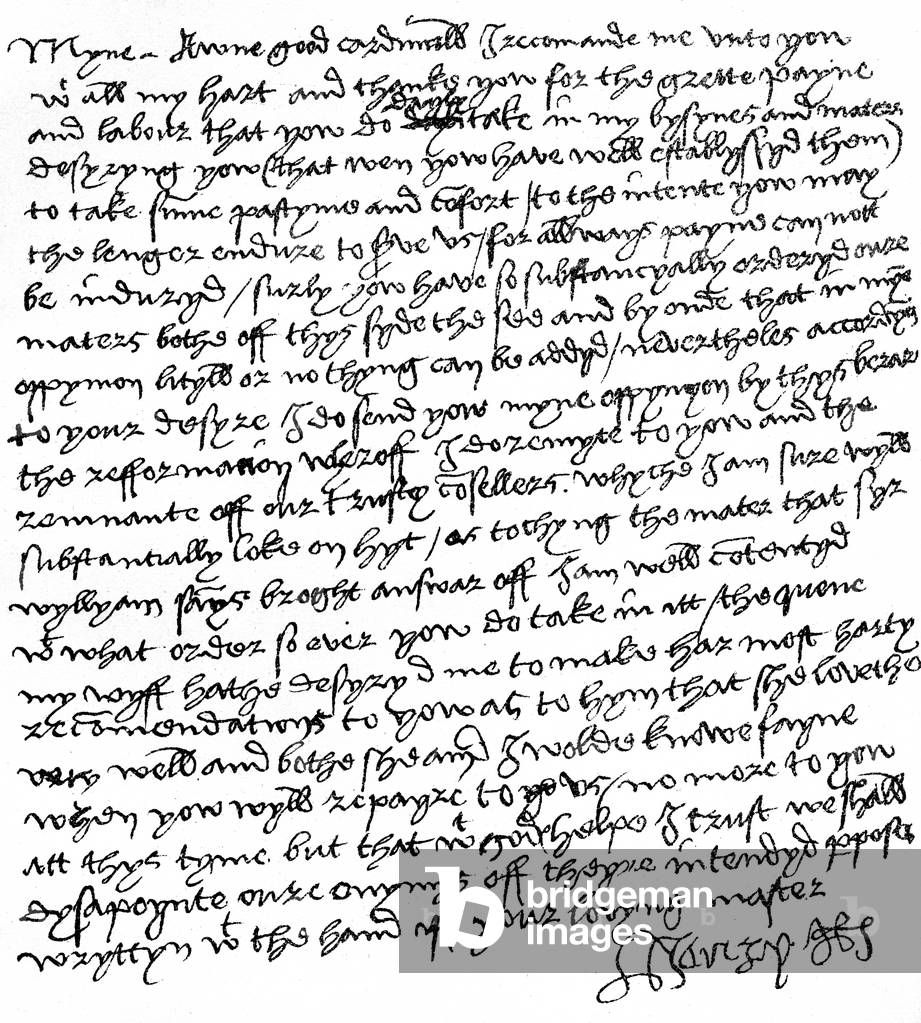 Myne awne good cardinall I recomande me unto yow
wt all my hart and thanke yow for the grette payne
and labour that yow do dayly take in my bysynes and maters
desyryng yow (that wen yow have well establyssyd them)
to take summe pastyme and comfort / to the intente yow may
the lenger endure to serve us / for allways payne can nott
be induryd / surly yow have so substancyally orderyd oure
maters bothe off thys syde the see and byonde that in myne
oppynion lityll or no thyng can be addyd / nevertheles accordyng
to your desyre I do send yow myne oppynyon by thys berar
the refformation wheroff I do remyte to yow and the
remnante off our trusty consellers whyche I am sure wyll
substantially loke on hyt / as tochyng the mater that syr
wyllyam says broght answar off I am well contentyd
wt what order so ever yow do take in itt / the quene
my wyff hathe desyryd me to make har most harty
recomendations to yow as to hym that she lovethe
very well and bothe she and I wolde knowe fayne
when yow wyll repayre to us / no more to yow
att thys tyme but that wt gods helpe I trust we shall
dysapoynte oure enymys off theyre intendyd purpose
wryttyn wt the hand off your lovyng master
Henry
bridgeman
images
b